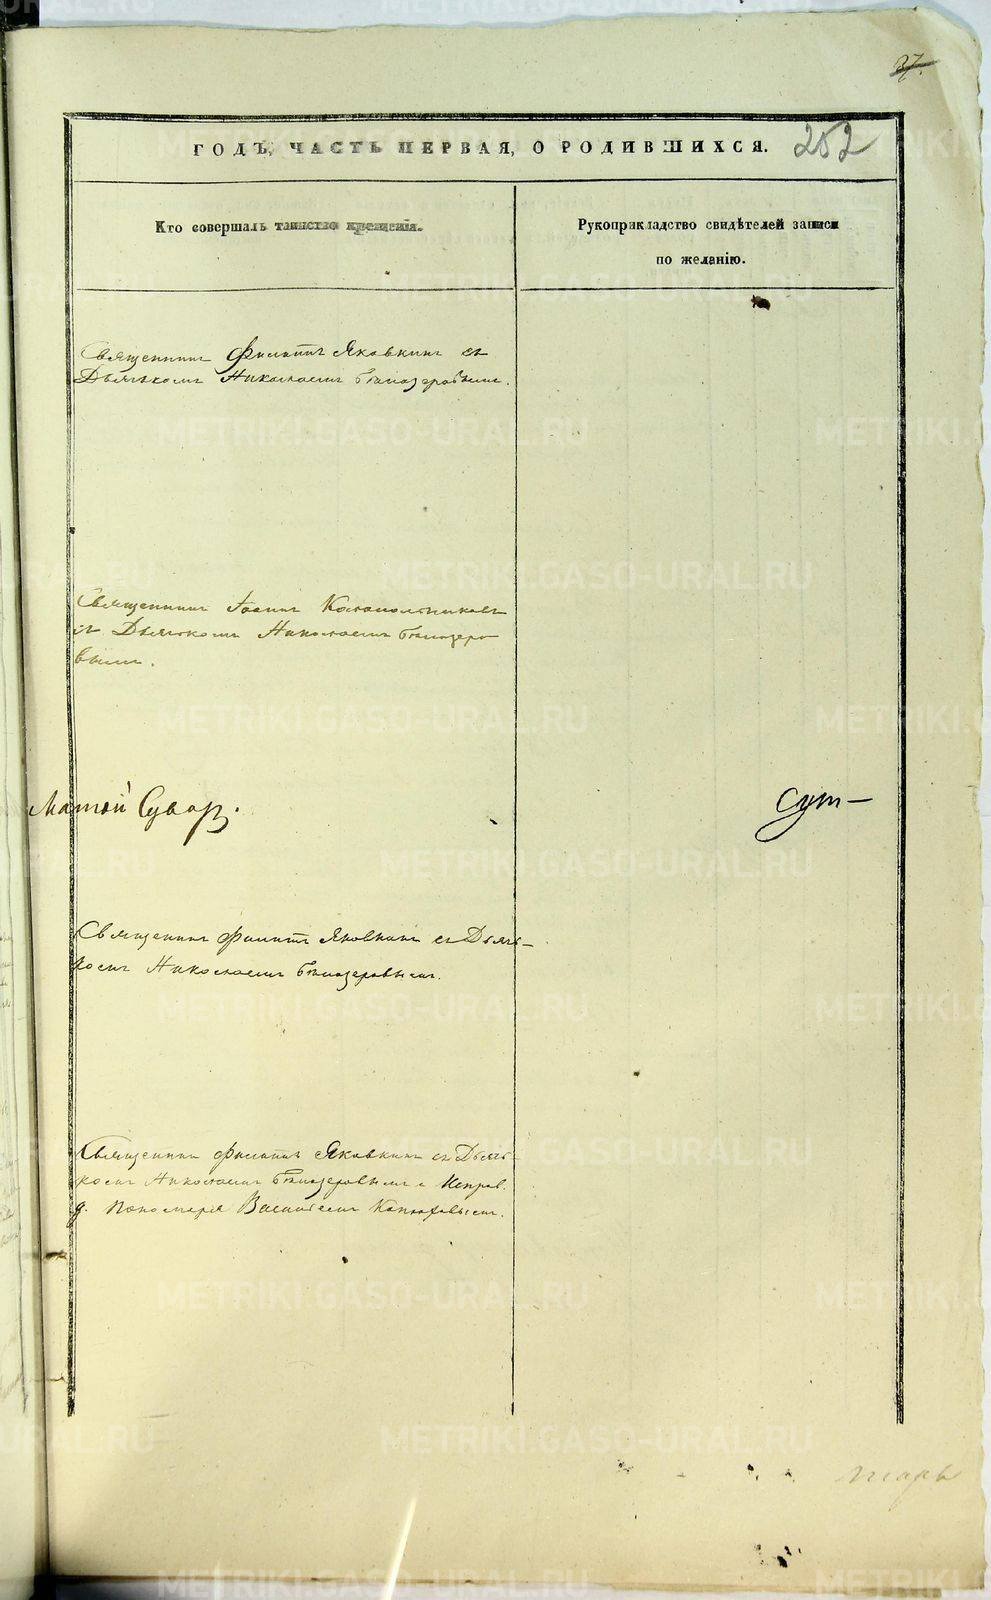 37.
ГОДЪ, ЧАСТЬ ПЕРВАЯ, О РОДИВШИХСЯ. 252
Кто совершалъ таинство крещенія.
Рукоприкладство свидѣтелей записи
по желанію.
Священникъ Филиппъ Яковкинъ съ
Дьячкомъ Николаемъ Бѣлозеровымъ.
Священникъ Іоаннъ
съ Дьячкомъ Николаемъ Бѣлозеро
вымъ.
Священникъ Филиппъ Яковкинъ съ Дьяч-
комъ Николаемъ Бѣлозеровымъ.
Священникъ Филиппъ Яковкинъ съ Дьяч-
комъ Николаемъ Бѣлозеровымъ и Исправ.
д. Пономаря Василіемъ
METRIKI.GASO-URAL.RU